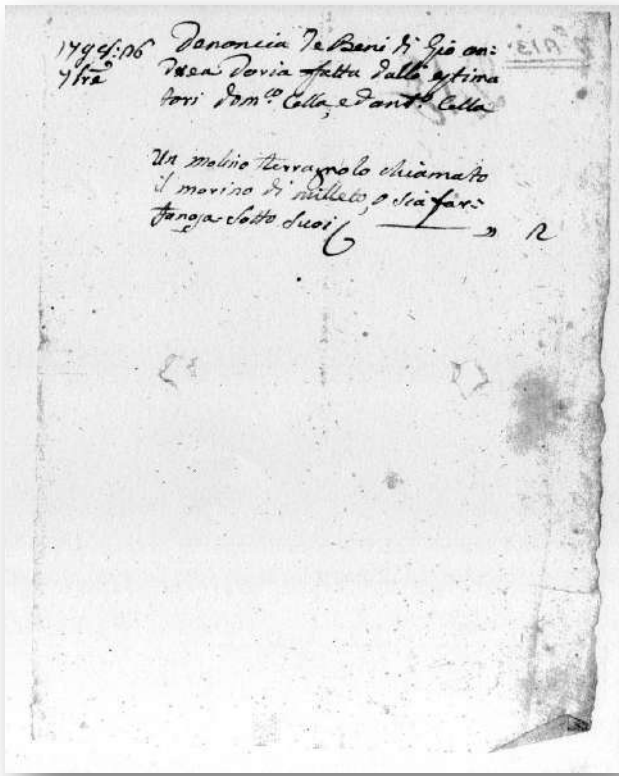 Denoncia de Beni di Gio an:
7bre drea Doria fatta dalle estima
tori Dom.co Cella, e Dant.o Cella
Un molino terragnolo chiamato
il morino di milleto, o sia
sotto suoi